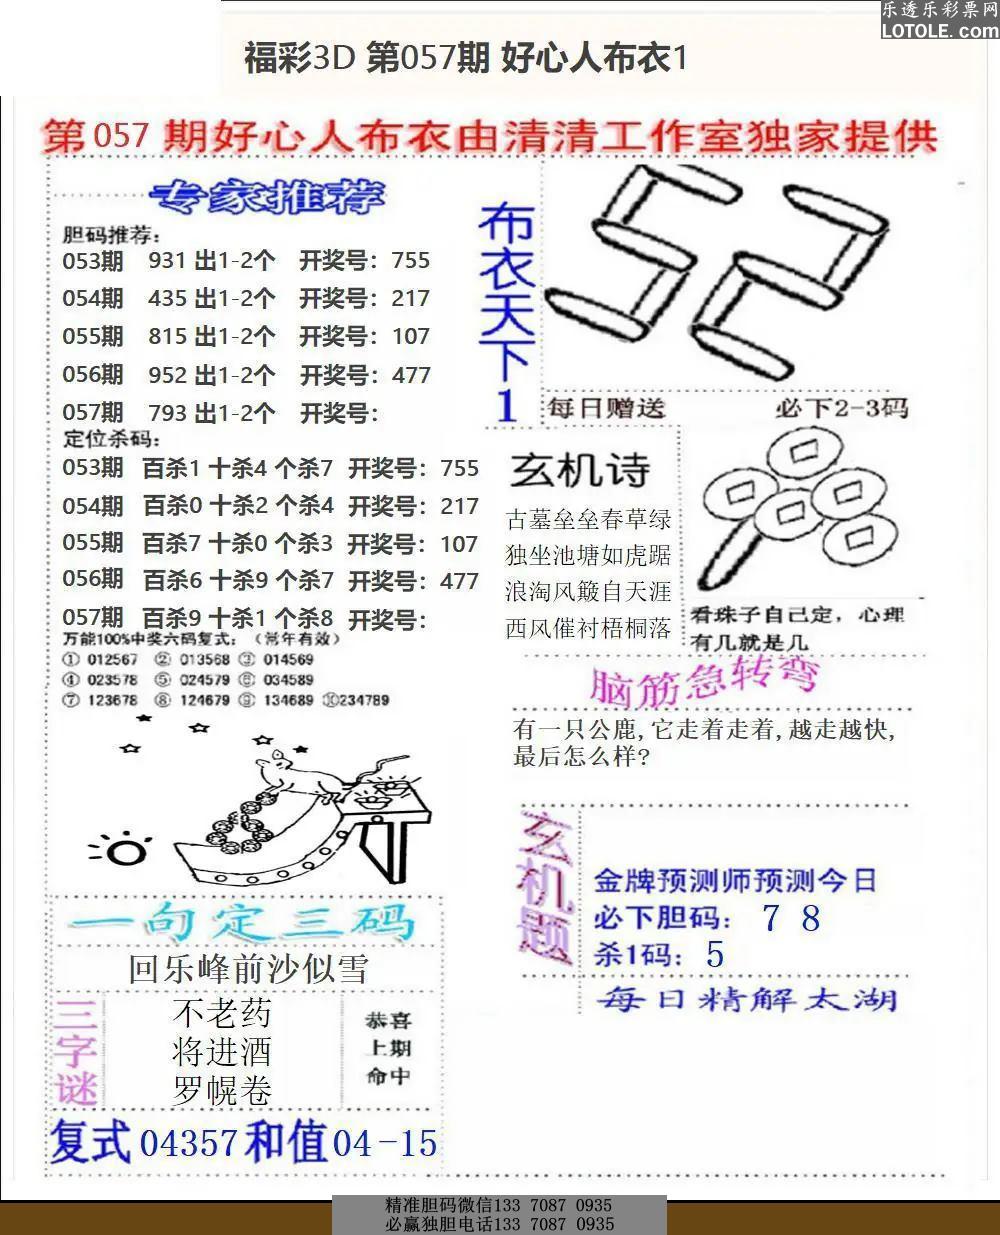 乐透乐彩票网
LOTOLE.com
福彩3D 第057期 好心人布衣1
第057 期好心人布衣由清清工作室独家提供
专家推荐
胆码推荐：
053期 931 出1-2个 开奖号：755
054期 435 出1-2个 开奖号：217
055期 815 出1-2个 开奖号：107
056期 952 出1-2个 开奖号：477
057期 793 出1-2个 开奖号：
定位杀码：
053期 百杀1 十杀4 个杀7 开奖号：755
054期 百杀0 十杀2 个杀4 开奖号：217
055期 百杀7 十杀0 个杀3 开奖号：107
056期 百杀6 十杀9 个杀7 开奖号：477
057期 百杀9 十杀1 个杀8 开奖号：
万能100%中奖六码复式：（常年有效）
① 012567 ② 013568 ③ 014569
④ 023578 ⑤ 024579 ⑥ 034589
⑦ 123678 ⑧ 124679 ⑨ 134689 ⑩234789
一句定三码
回乐峰前沙似雪
三字谜
不老药
将进酒
罗幌卷
恭喜
上期
命中
复式 04357 和值 04-15
布衣天下1
52
每日赠送 必下2-3码
玄机诗
古墓垒垒春草绿
独坐池塘如虎踞
浪淘风簸自天涯
西风催衬梧桐落
看珠子自己定，心理
有几就是几
脑筋急转弯
有一只公鹿,它走着走着,越走越快,
最后怎么样?
玄机题
金牌预测师预测今日
必下胆码： 7 8
杀1码： 5
每日精解太湖
精准胆码微信133 7087 0935
必赢独胆电话133 7087 0935